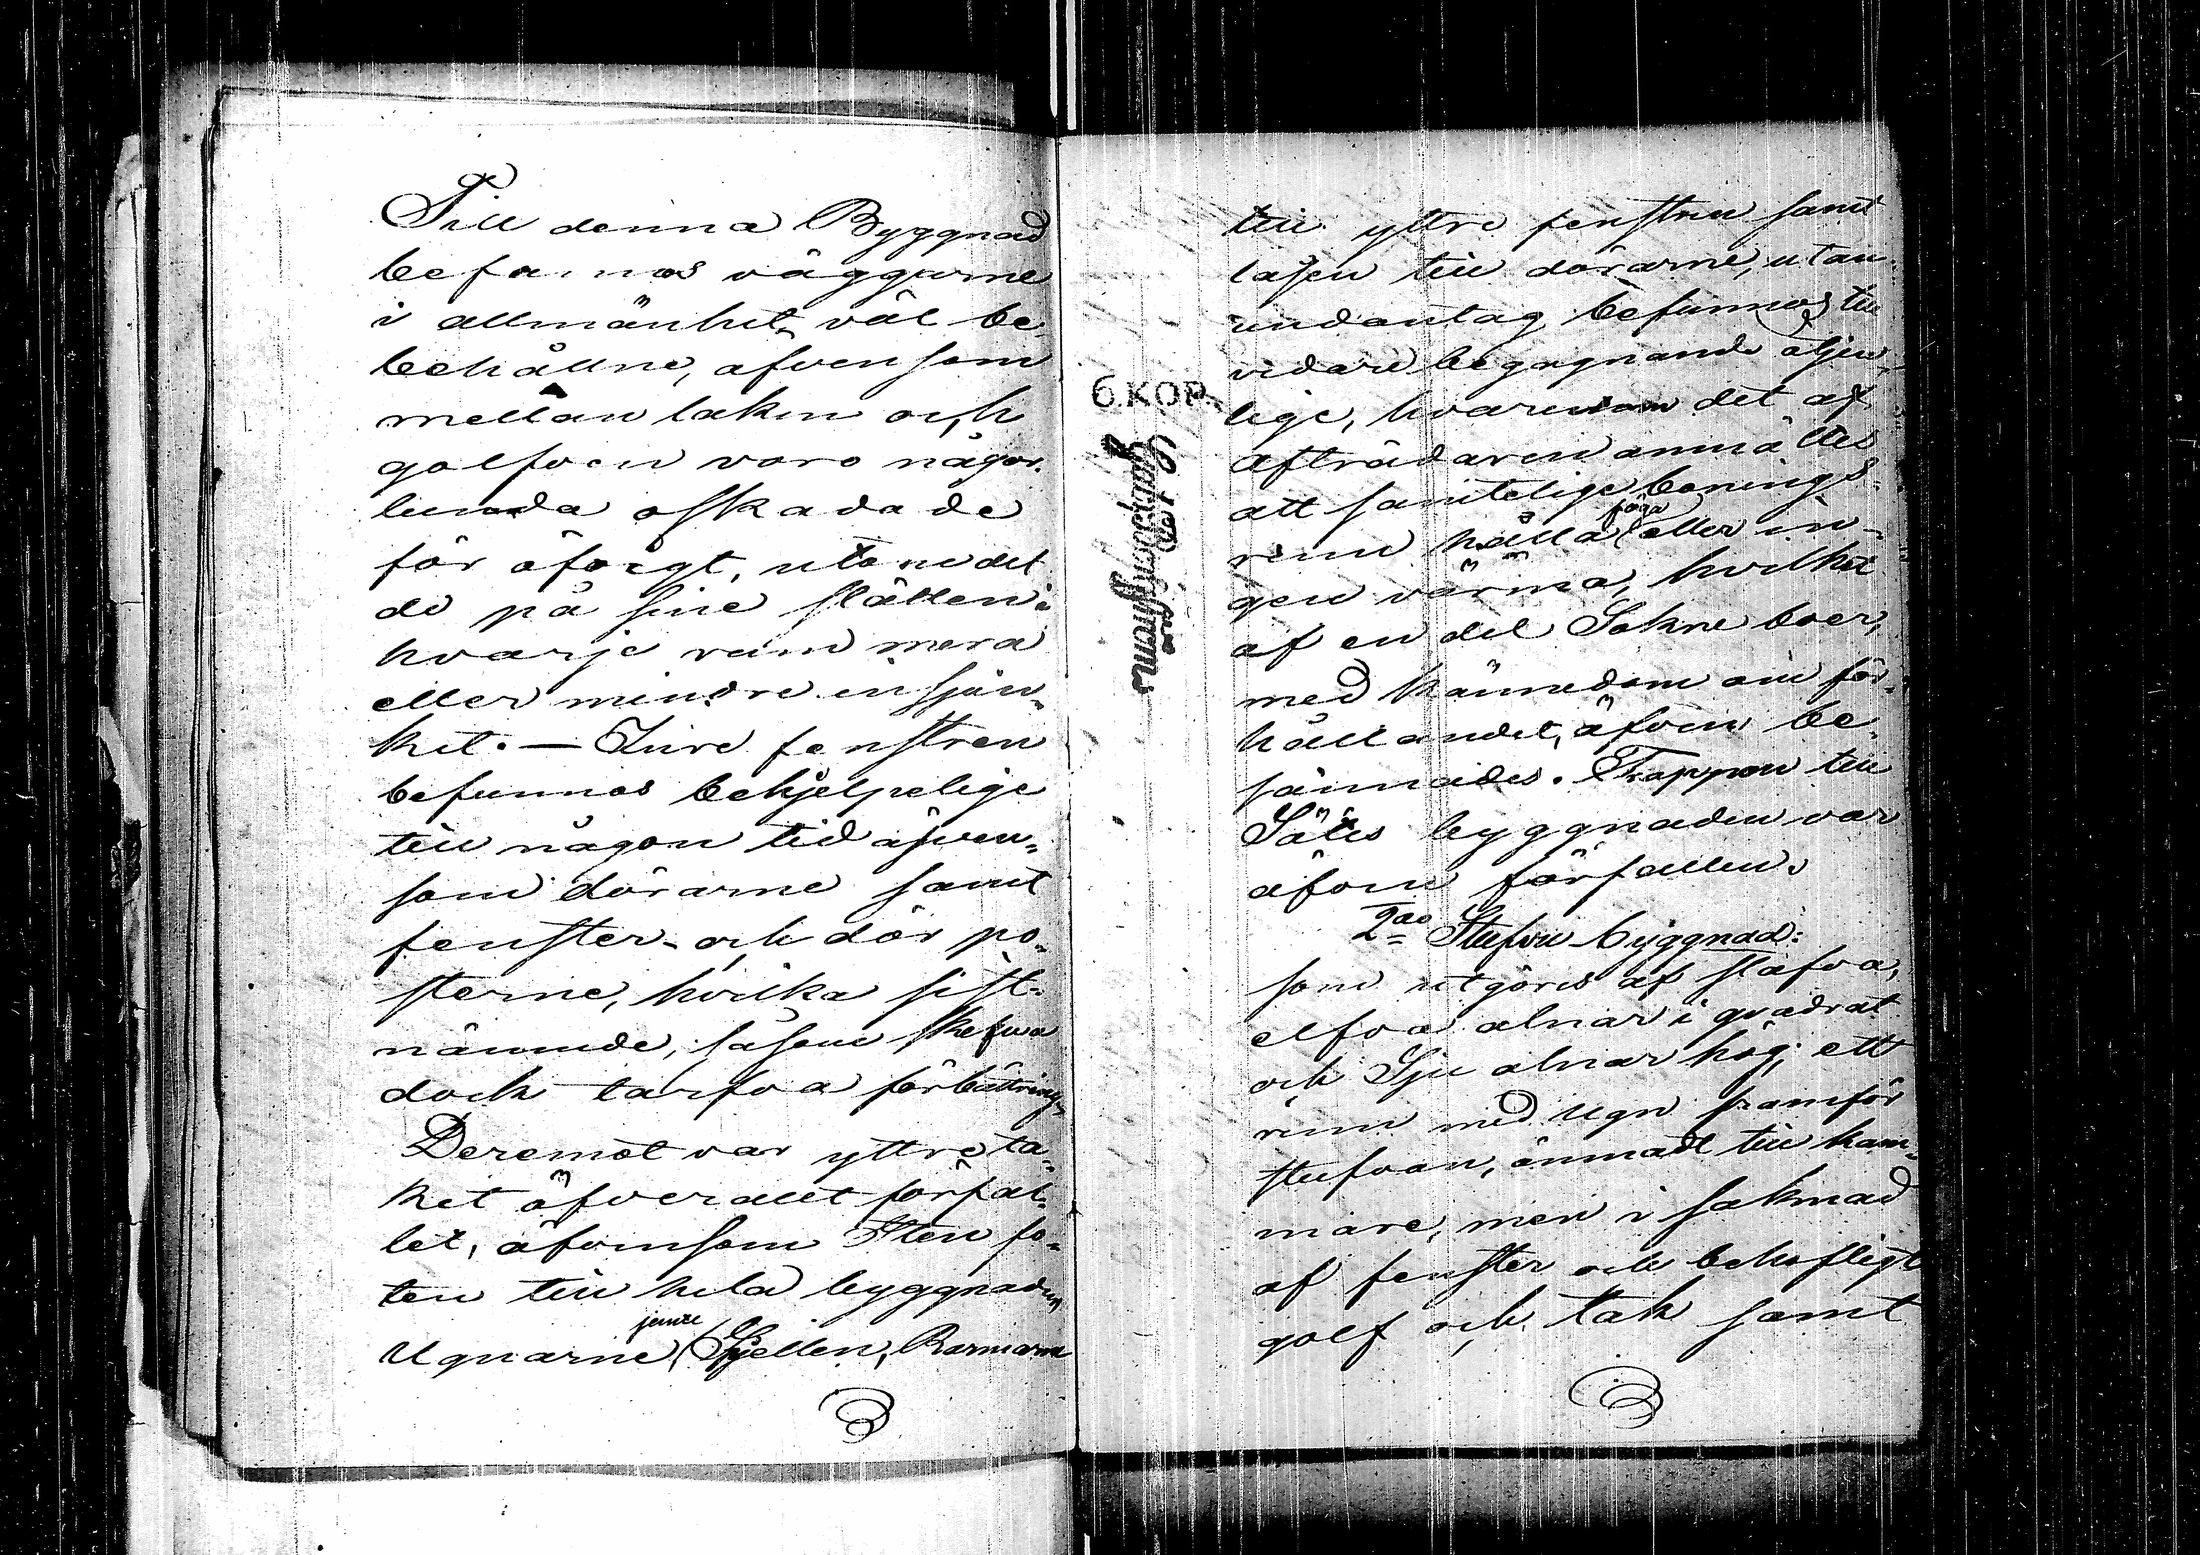 Till denna Byggnad
befannos väggarne
i allmänhet väl be¬
behållne, äfvensom
mellan taken och
golfven voro någor¬
lunda oskadade
för öfrigt, utom det
de på sine ställen i
hvarje rum mera
eller mindre insjun¬
kit. — Inre fenstren
befunnos behjelpelige
till någon tid äfven¬
som dörarne samt
fenster- och dör po¬
sterne, hvilka sist¬
nämnde, såsom skefva
dock tarfva förbättring,
Deremot var yttre ta¬
ket öfverallt förfal¬
let, äfvensom Sten fo¬
ten till hela byggnaden
jemte
Ugnarne, Spjellen, Ramarne
till yttre fenstren samt
låsen till dörarne, utan
undantag befunnos till
vidare begagnande otjen¬
lige, hvarutom det af
afträdaren anmältes
att samtelige bonings¬
föga
rum hålla eller in¬
gen värma, hvilket
af en del Sokne boer,
med kännedom om för¬
hållandet, äfven be¬
sannades. Trappen till
Sätes byggnaden var
äfven förfallen.
2do Stufvu byggnad:
som utgöres af stufva,
elfva alnar i qvadrat
och Sju alnar hög; ett
rum med Ugn framför
stufvan, ämnadt till kam¬
mare, men i saknad
af fenster och behöfligt
golf och tak samt
6. KOP.